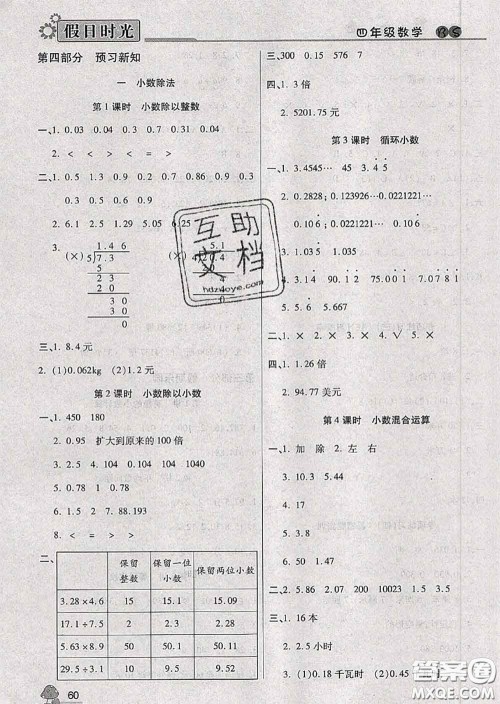 假日时光
四年级数学 BS
第四部分 预习新知
一 小数除法
第1课时 小数除以整数
一、1. 0.03 0.04 0.3 0.7 0.31 0.04
2. < < > < = >
二、1. 0.5 1.3 0.9 0.2 0.06 0.9 0.3
0.3
2. 6.1 2.5 1.29 5.05 6.25
3. 1.46 5.1
(×) 5)7.3 (×) 4)20.4
5 20
23 4
20 4
30 0
30
0
三、1. 8.4元
2. (1)0.062kg (2)1.2元
第2课时 小数除以小数
一、1. 450 180
2. 0.95 扩大到原来的100倍
3. 0.5 2. 2.5 4. 104 5. 1040
6. 1.05 1.5 7. 2 88.193
8. < < = > > <
二、
保留整数 保留一位小数 保留两位小数
3.28×4.6 15 15.1 15.09
17.1÷7.5 2 2.3 2.28
5.63×8.9 50 50.1 50.11
29.5÷3.1 10 9.5 9.52
60
三、300 0.15 576 7
四、1. 3倍
2. 5201.75元
第3课时 循环小数
一、1. 3.4545… 3.4̇5̇
2. 0.2828; 0.123926… 0.0221221…
0.106̇
3. 1.035̇ 1.035
4. 0.715
5.
6. 0.0221221…
二、1. × 2. × 3. × 4. √ 5. √
三、1. 1.26倍
2. 94.77美元
第4课时 小数混合运算
一、1. 加 除 2. 左 右
3. 10 3. 5.44
4. 17.01
5. 50 1.49
6. 0.51
二、5 2.86 2.07 200 10023 1.5 3.5
三、1. 16本
2. 2.5小时
3. (1)0.18千瓦时 (2)0.45
互助文档
hdzuoye.com
答案圈
MXQE.COM